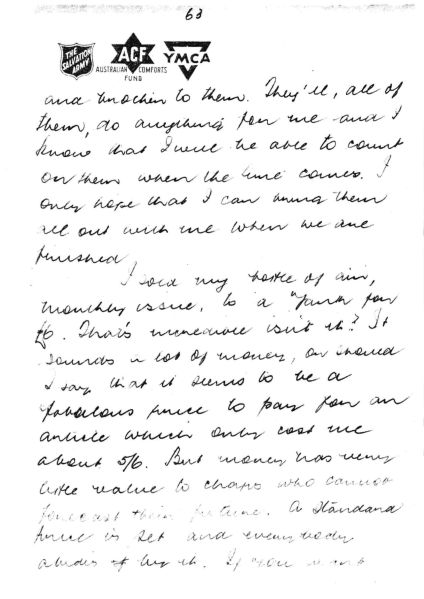 63
THE SALVATION ARMY
ACF
AUSTRALIAN COMFORTS FUND
YMCA
and to them. They'll, all of
them, do anything for me and I
know that I will be able to count
on them when the time comes. I
only hope that I can bring them
all out with me when we are
finished.
I sold my bottle of gin,
monthly issue, to a "Yank" for
£6. That's incredible isn't it? It
sounds a lot of money, or should
I say that it seems to be a
fabulous price to pay for an
article which only cost me
about 5/6. But money has very
little value to chaps who cannot
forecast their future. A standard
price is set and everybody
abides by it. If you want